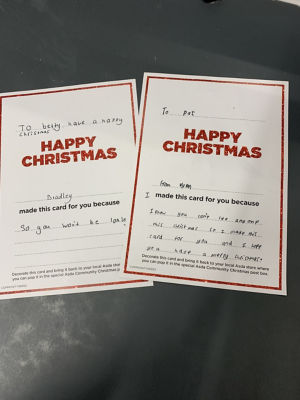 To betty have a happy
christmas
HAPPY
CHRISTMAS
Bradley
made this card for you because
So you won't be
Decorate this card and bring it back to your local Asda store
you can pop it in the special Asda Community Christmas p
To pat
HAPPY
CHRISTMAS
from
I made this card for you because
I know you can't see anyone
this christmas so I made this
card for you and I hope
you have a merry christmas
Decorate this card and bring it back to your local Asda store where
you can pop it in the special Asda Community Christmas post box.